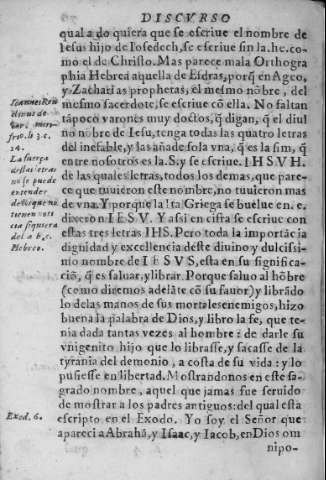 DISCVRSO
qual a do quiera que se escriue el nombre de
Iesus hijo de Iosedech, se escriue sin la.he.co-
mo el de Christo. Mas parece mala Orthogra
phia Hebrea aquella de Esdras, porq̃ en Ageo,
y Zacharias prophetas, el mesmo nõbre, del
mesmo sacerdote, se escriue cõ ella. No faltan
tãpoco varones muy doctos, q̃ digan, q̃ el diui
no nõbre de Iesu, tenga todas las quatro letras
del inefable, y las añade sola vna, q̃ es la sim, q̃
entre nosotros es la. S. y se escriue. IHSVH.
de las quales letras, todos los demas, que pare-
ce que tuuierõn este nombre, no tuuieron mas
de vna. Y porque la Ita Griega se buelue en. e.
dixeron IESV. Y assi en cifra se escriue con
estas tres letras IHS. Pero toda la importãcia
dignidad y excellencia deste diuino y dulcissi-
mo nombre de IESVS, esta en su significa-
ciõ, q̃ es saluar, y librar. Porque saluo al hõbre
(como diremos adelãte cõ su fauor) y librãdo
lo delas manos de sus mortales enemigos, hizo
buena la palabra de Dios, y libro la fe, que te-
nia dada tantas vezes al hombre: de darle su
vnigenito hijo que lo librasse, y sacasse de la
tyrania del demonio, a costa de su vida: y lo
pusiesse en libertad. Mostrandonos en este sa-
grado nombre, aquel que jamas fue seruido
de mostrar a los padres antiguos: del qual esta
escripto en el Exodo. Yo soy el Señor que
apareci a Abrahã, y Isaac, y Iacob, en Dios om
nipo-
Ioannes Reu
clinus de
verbo miri-
fico. li. 3. c.
14.
La fuerça
destas letras
no se puede
entender
de los que no
tienen noti
cia siquiera
del a b, c.
Hebreo.
Exod. 6.